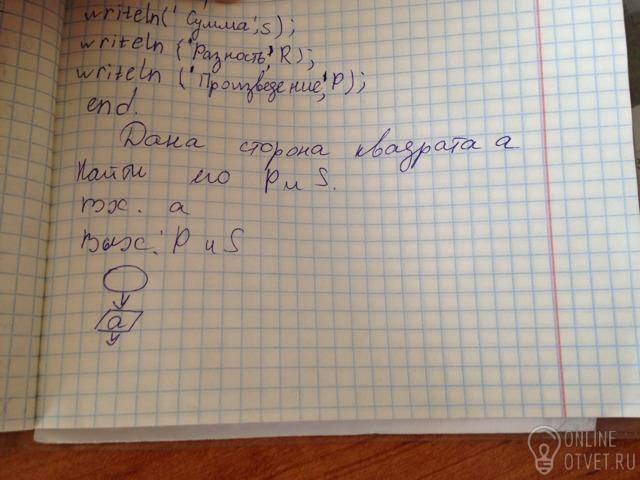 writeln(' Сумма', S);
writeln ('Разность', R);
writeln ('Произведение', P);
end.
Дана сторона квадрата a
Найти его P и S.
вх. a
Вых: P и S
a
ONLINE
OTVET.RU